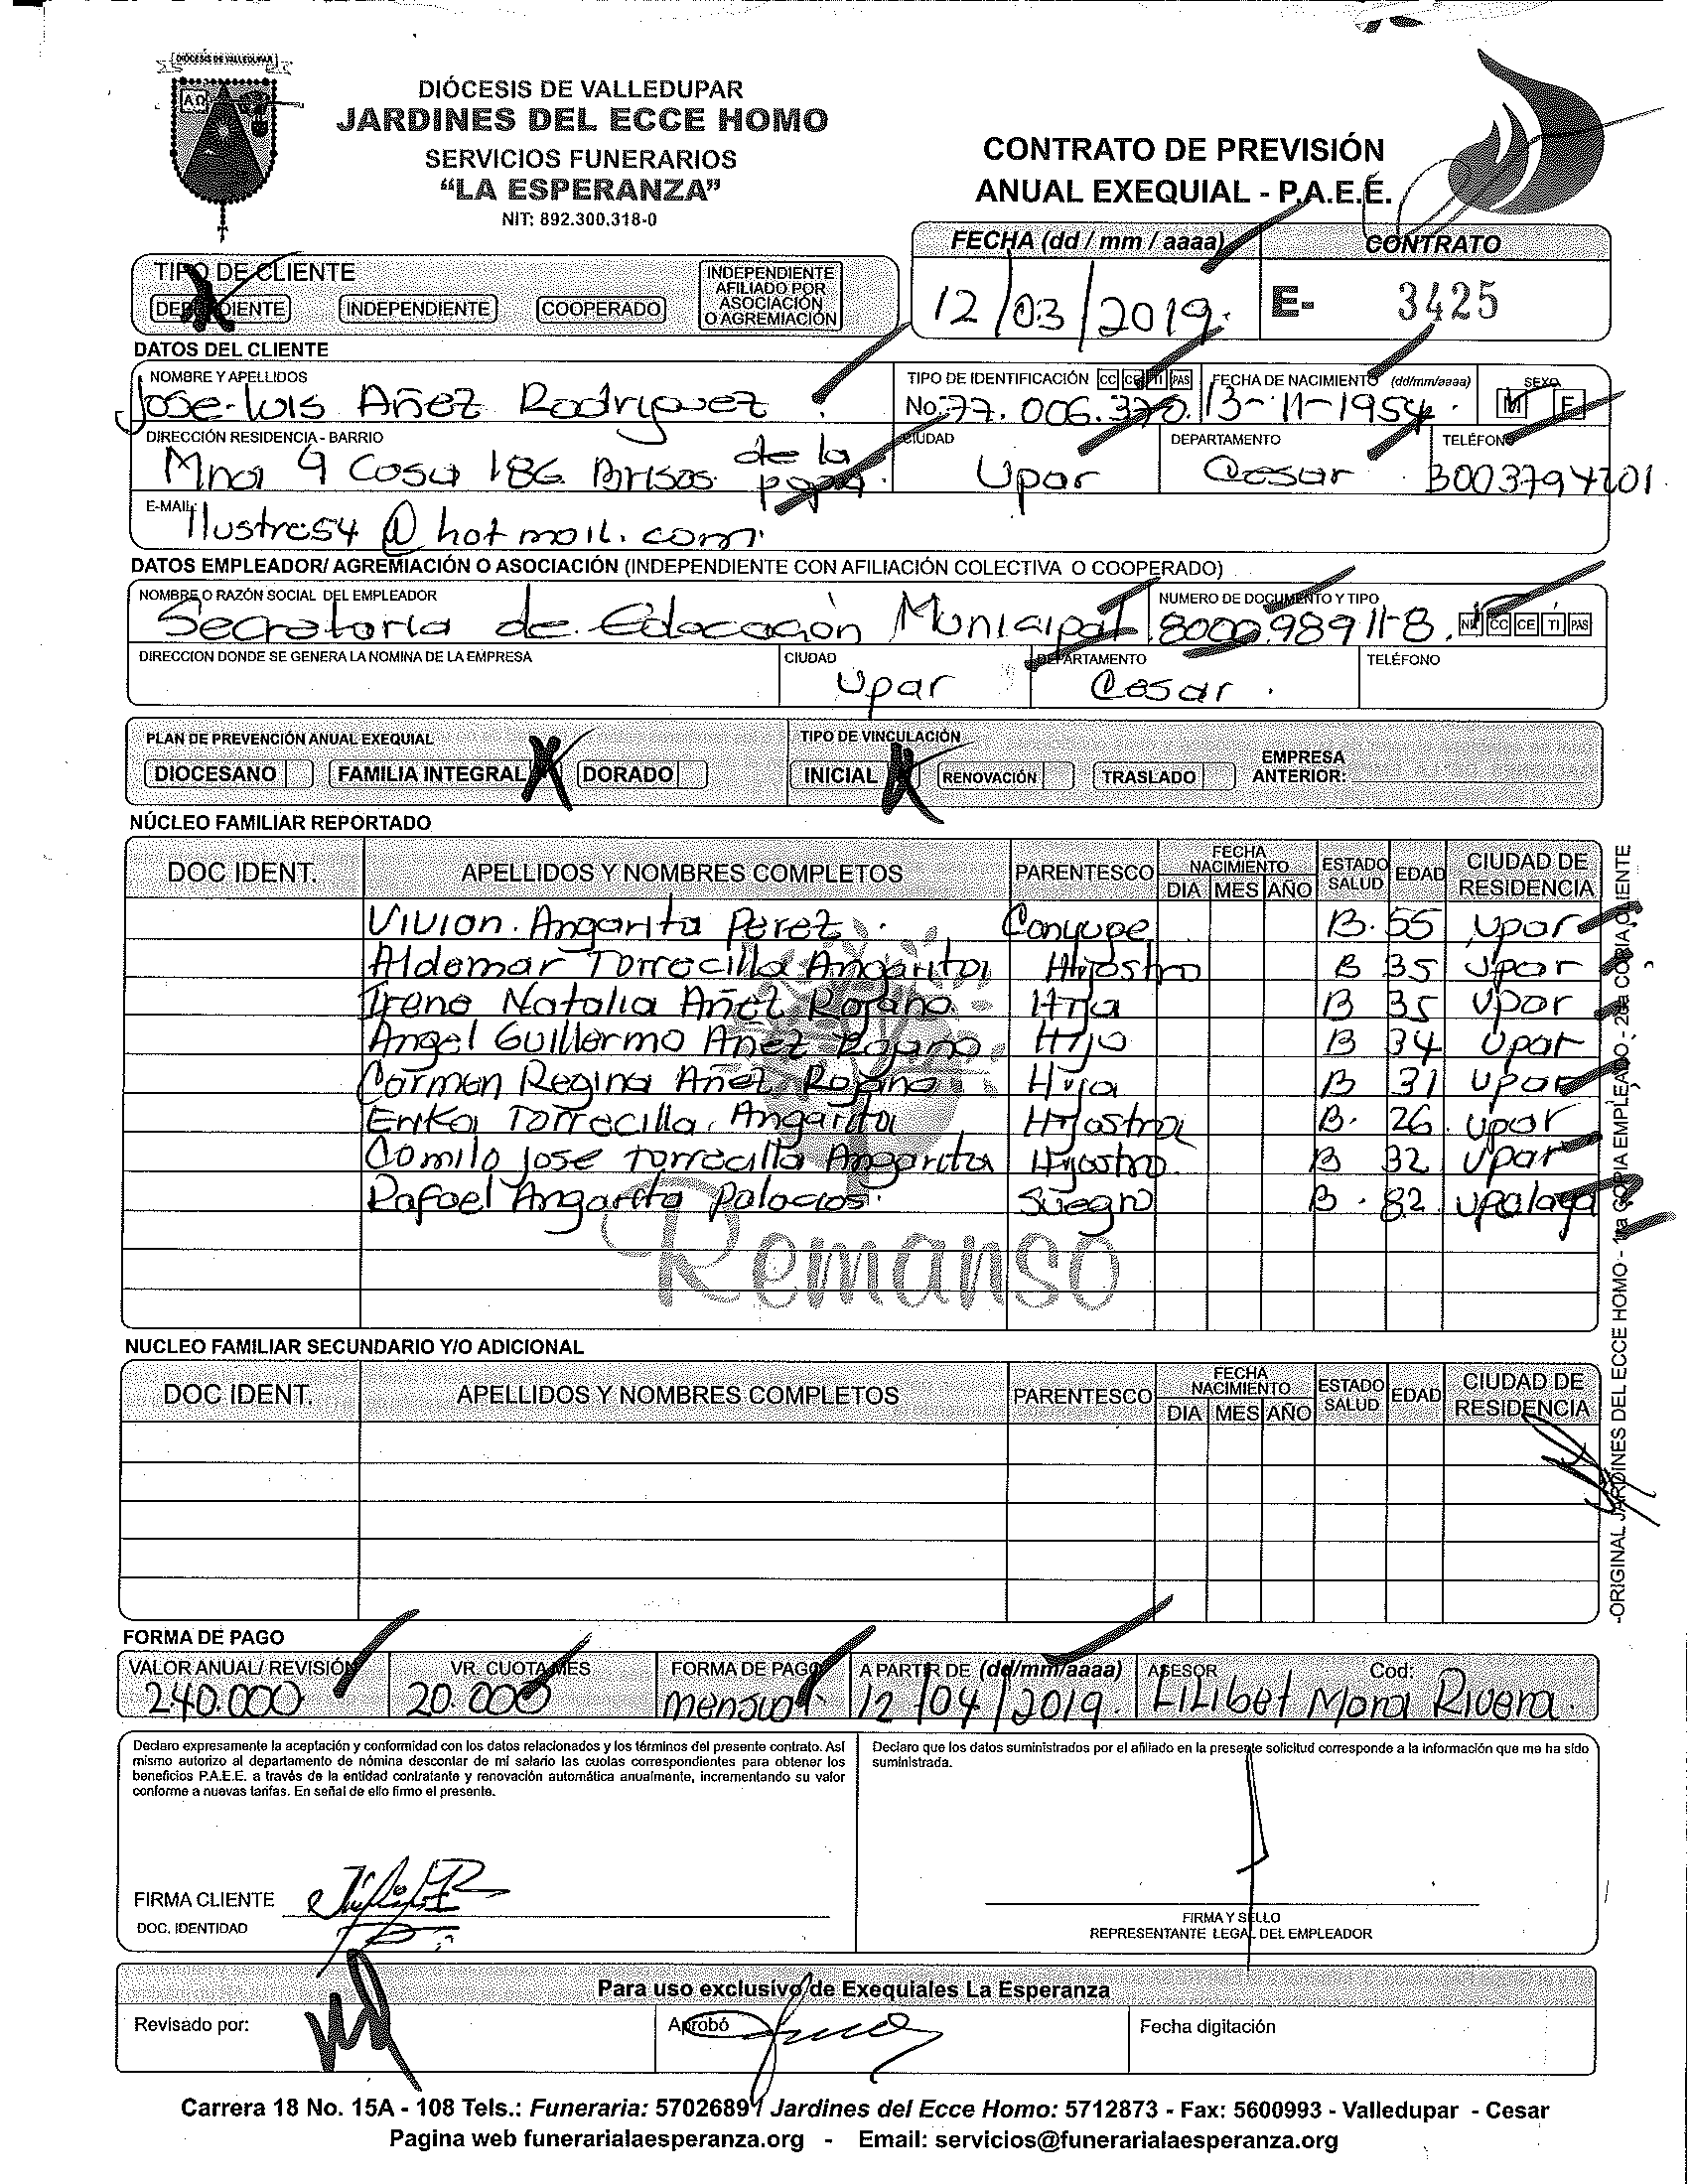 DIÓCESIS DE VALLEDUPAR
DIÓCESIS DE VALLEDUPAR
JARDINES DEL ECCE HOMO
SERVICIOS FUNERARIOS
"LA ESPERANZA"
NIT: 892.300.318-0
CONTRATO DE PREVISIÓN
ANUAL EXEQUIAL - P.A.E.E.
FECHA (dd / mm / aaaa) CONTRATO
12/03/2019. E- 3425
TIPO DE CLIENTE
DEPENDIENTE INDEPENDIENTE COOPERADO INDEPENDIENTE AFILIADO POR ASOCIACIÓN O AGREMIACIÓN
DATOS DEL CLIENTE
NOMBRE Y APELLIDOS TIPO DE IDENTIFICACIÓN CC CE TI PAS FECHA DE NACIMIENTO (dd/mm/aaaa) SEXO
Jose Luis Añez Rodriguez No. 77.006.370. 13-11-1954. M F
DIRECCIÓN RESIDENCIA - BARRIO CIUDAD DEPARTAMENTO TELÉFONO
Mna 9 Casa 186 Brisas de la popa. Upar Cesar 3003794201
E-MAIL: Ilustre54@hotmail.com
DATOS EMPLEADOR/ AGREMIACIÓN O ASOCIACIÓN (INDEPENDIENTE CON AFILIACIÓN COLECTIVA O COOPERADO)
NOMBRE O RAZÓN SOCIAL DEL EMPLEADOR NUMERO DE DOCUMENTO Y TIPO
Secretaria de Educación Municipal 800098911-8. NIT CC CE TI PAS
DIRECCION DONDE SE GENERA LA NOMINA DE LA EMPRESA CIUDAD DEPARTAMENTO TELÉFONO
Upar Cesar.
PLAN DE PREVENCIÓN ANUAL EXEQUIAL TIPO DE VINCULACIÓN
DIOCESANO FAMILIA INTEGRAL X DORADO INICIAL X RENOVACIÓN TRASLADO EMPRESA ANTERIOR:
NÚCLEO FAMILIAR REPORTADO
DOC IDENT. APELLIDOS Y NOMBRES COMPLETOS PARENTESCO FECHA NACIMIENTO DIA MES AÑO ESTADO SALUD EDAD CIUDAD DE RESIDENCIA
Vivian Angarita Perez Conyuge B. 55 Upar
Aldemar Torrecilla Angarita Hijastro B 35 Upar
Irene Natalia Añez Rojano Hija B 35 Upar
Angel Guillermo Añez Rojano Hijo B 34 Upar
Carmen Regina Añez Rojano Hija B 31 Upar
Erika Torrecilla Angarita Hijastra B. 26. Upar
Camilo Jose Torrecilla Angarita Hijastro B 32 Upar
Rafael Angarita Palacios Suegro B. 82
Remanso
NUCLEO FAMILIAR SECUNDARIO Y/O ADICIONAL
DOC IDENT. APELLIDOS Y NOMBRES COMPLETOS PARENTESCO FECHA NACIMIENTO DIA MES AÑO ESTADO SALUD EDAD CIUDAD DE RESIDENCIA
-ORIGINAL JARDINES DEL ECCE HOMO - 1ra COPIA EMPLEADO - 2da COPIA CLIENTE
FORMA DE PAGO
VALOR ANUAL/ REVISIÓN VR. CUOTA MES FORMA DE PAGO A PARTIR DE (dd/mm/aaaa) ASESOR Cod:
240.000 20.000 mensual 12/04/2019. Lilibet Mora Rivera.
Declaro expresamente la aceptación y conformidad con los datos relacionados y los términos del presente contrato. Así
mismo autorizo al departamento de nómina descontar de mi salario las cuotas correspondientes para obtener los
beneficios P.A.E.E. a través de la entidad contratante y renovación automática anualmente, incrementando su valor
conforme a nuevas tarifas. En señal de ello firmo el presente.
Declaro que los datos suministrados por el afiliado en la presente solicitud corresponde a la información que me ha sido
suministrada.
FIRMA CLIENTE
DOC. IDENTIDAD
FIRMA Y SELLO
REPRESENTANTE LEGAL DEL EMPLEADOR
Para uso exclusivo de Exequiales La Esperanza
Revisado por: Aprobó Fecha digitación
Carrera 18 No. 15A - 108 Tels.: Funeraria: 5702689 / Jardines del Ecce Homo: 5712873 - Fax: 5600993 - Valledupar - Cesar
Pagina web funerarialaesperanza.org - Email: servicios@funerarialaesperanza.org